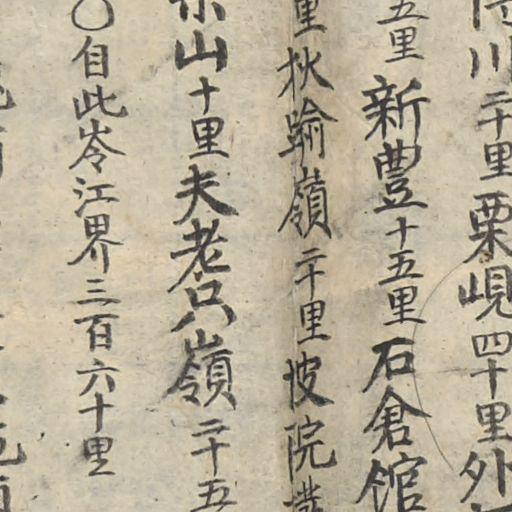 川二十里栗峴四十里外
五里新豊十五里石倉館
里狄踰嶺二十里坡院
山十里夫老只嶺二十五
○自此岺江界三百六十里